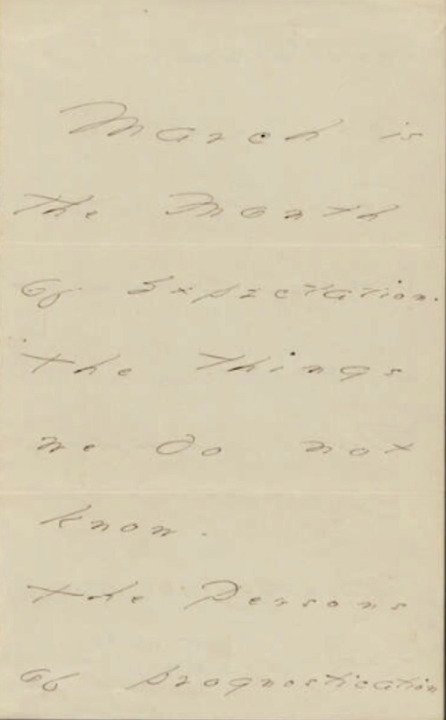 March is
the Month
of Expectation.
The Things
we do not
know.
The Persons
of prognostication